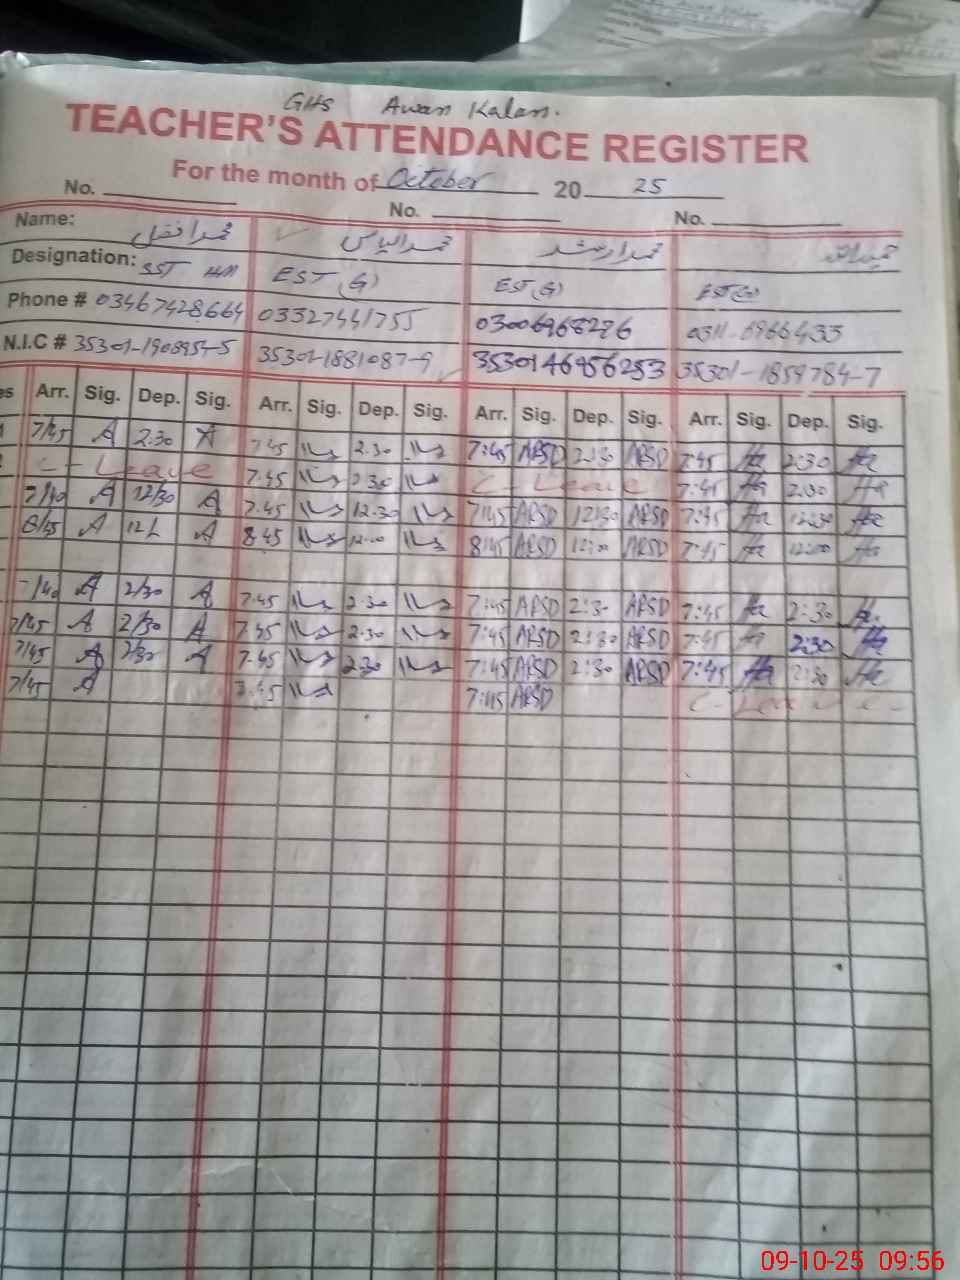 GHS Awan Kalan.
TEACHER'S ATTENDANCE REGISTER
For the month of October 2025
No. No. No.
Name: محمد افضل محمد الیاس محمد ارشد
Designation: SST HM EST (G) EST (G) EST (G)
Phone # 03467428664 03327441755 03006968286 0311-6966433
N.I.C # 35301-1908954-5 35301-1881087-9 3530146956253 35301-1859784-7
es Arr. Sig. Dep. Sig. Arr. Sig. Dep. Sig. Arr. Sig. Dep. Sig. Arr. Sig. Dep. Sig.
7/45 A 2.30 A 7.45 2.30 7:45 ARSD 2:30 ARSD 7:45 Ha 2:30 Ha
C-Leave 7.45 2.30 C-Leave 7:45 Ha 2:30 Ha
7/40 A 12/30 A 7.45 12.30 7:45 ARSD 12:30 ARSD 7:45 Ha 12:30 Ha
8/45 A A 8.45 8:45 ARSD 12:00 ARSD 7:45 Ha 12:00 Ha
7/40 A 2/30 A 7.45 2.30 7:45 ARSD 2:30 ARSD 7:45 Ha 2:30 Ha
7/45 A 2/30 A 7.45 2.30 7:45 ARSD 2:30 ARSD 7:45 Ha 2:30 Ha
7/45 A 2/30 A 7.45 2.30 7:45 ARSD 2:30 ARSD 7:45 Ha 2:30 Ha
7/45 A 7.45 7:45 ARSD C-Leave
09-10-25 09:56